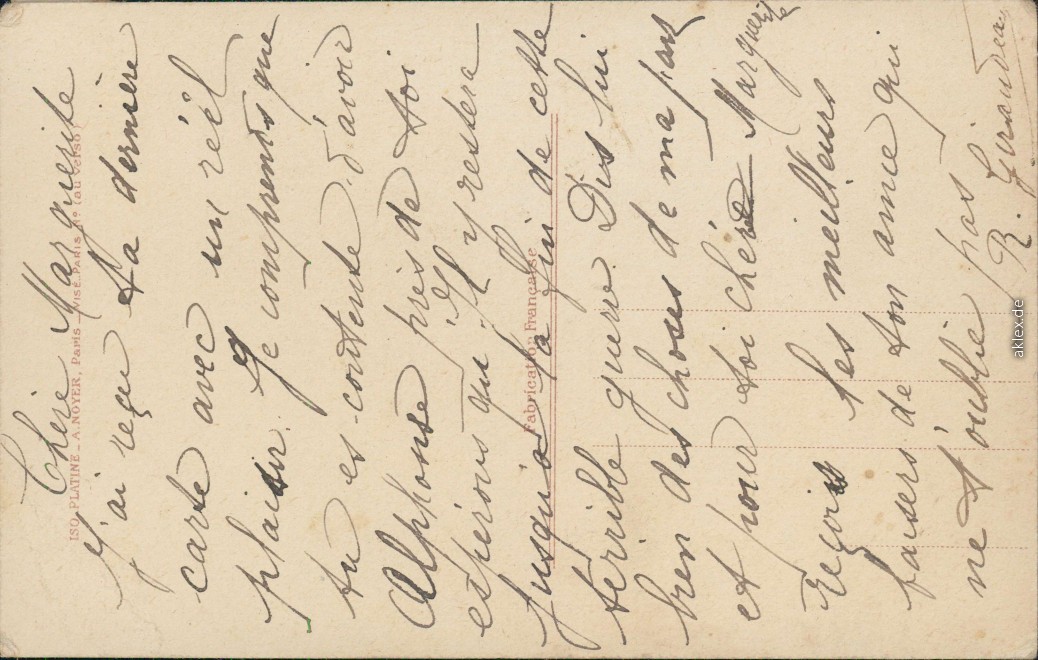 Chère Marguerite
J'ai reçu ta dernière
carte avec un réél
plaisir. Je comprends que
tu es contente d'avoir
Alphonse près de toi
espérons qu'Il y restera
jusqu'à la fin de cette
terrible guerre. Dis lui
bien des choses de ma part
et pour toi chère Marguerite
Reçois les meilleurs
baisers de ton amie qui
ne t'oublie pas
R. Giraudeau
ISO. PLATINE _ A. NOYER, Paris _ VISÉ PARIS N° (au verso)
Fabrication Française
aklex.de